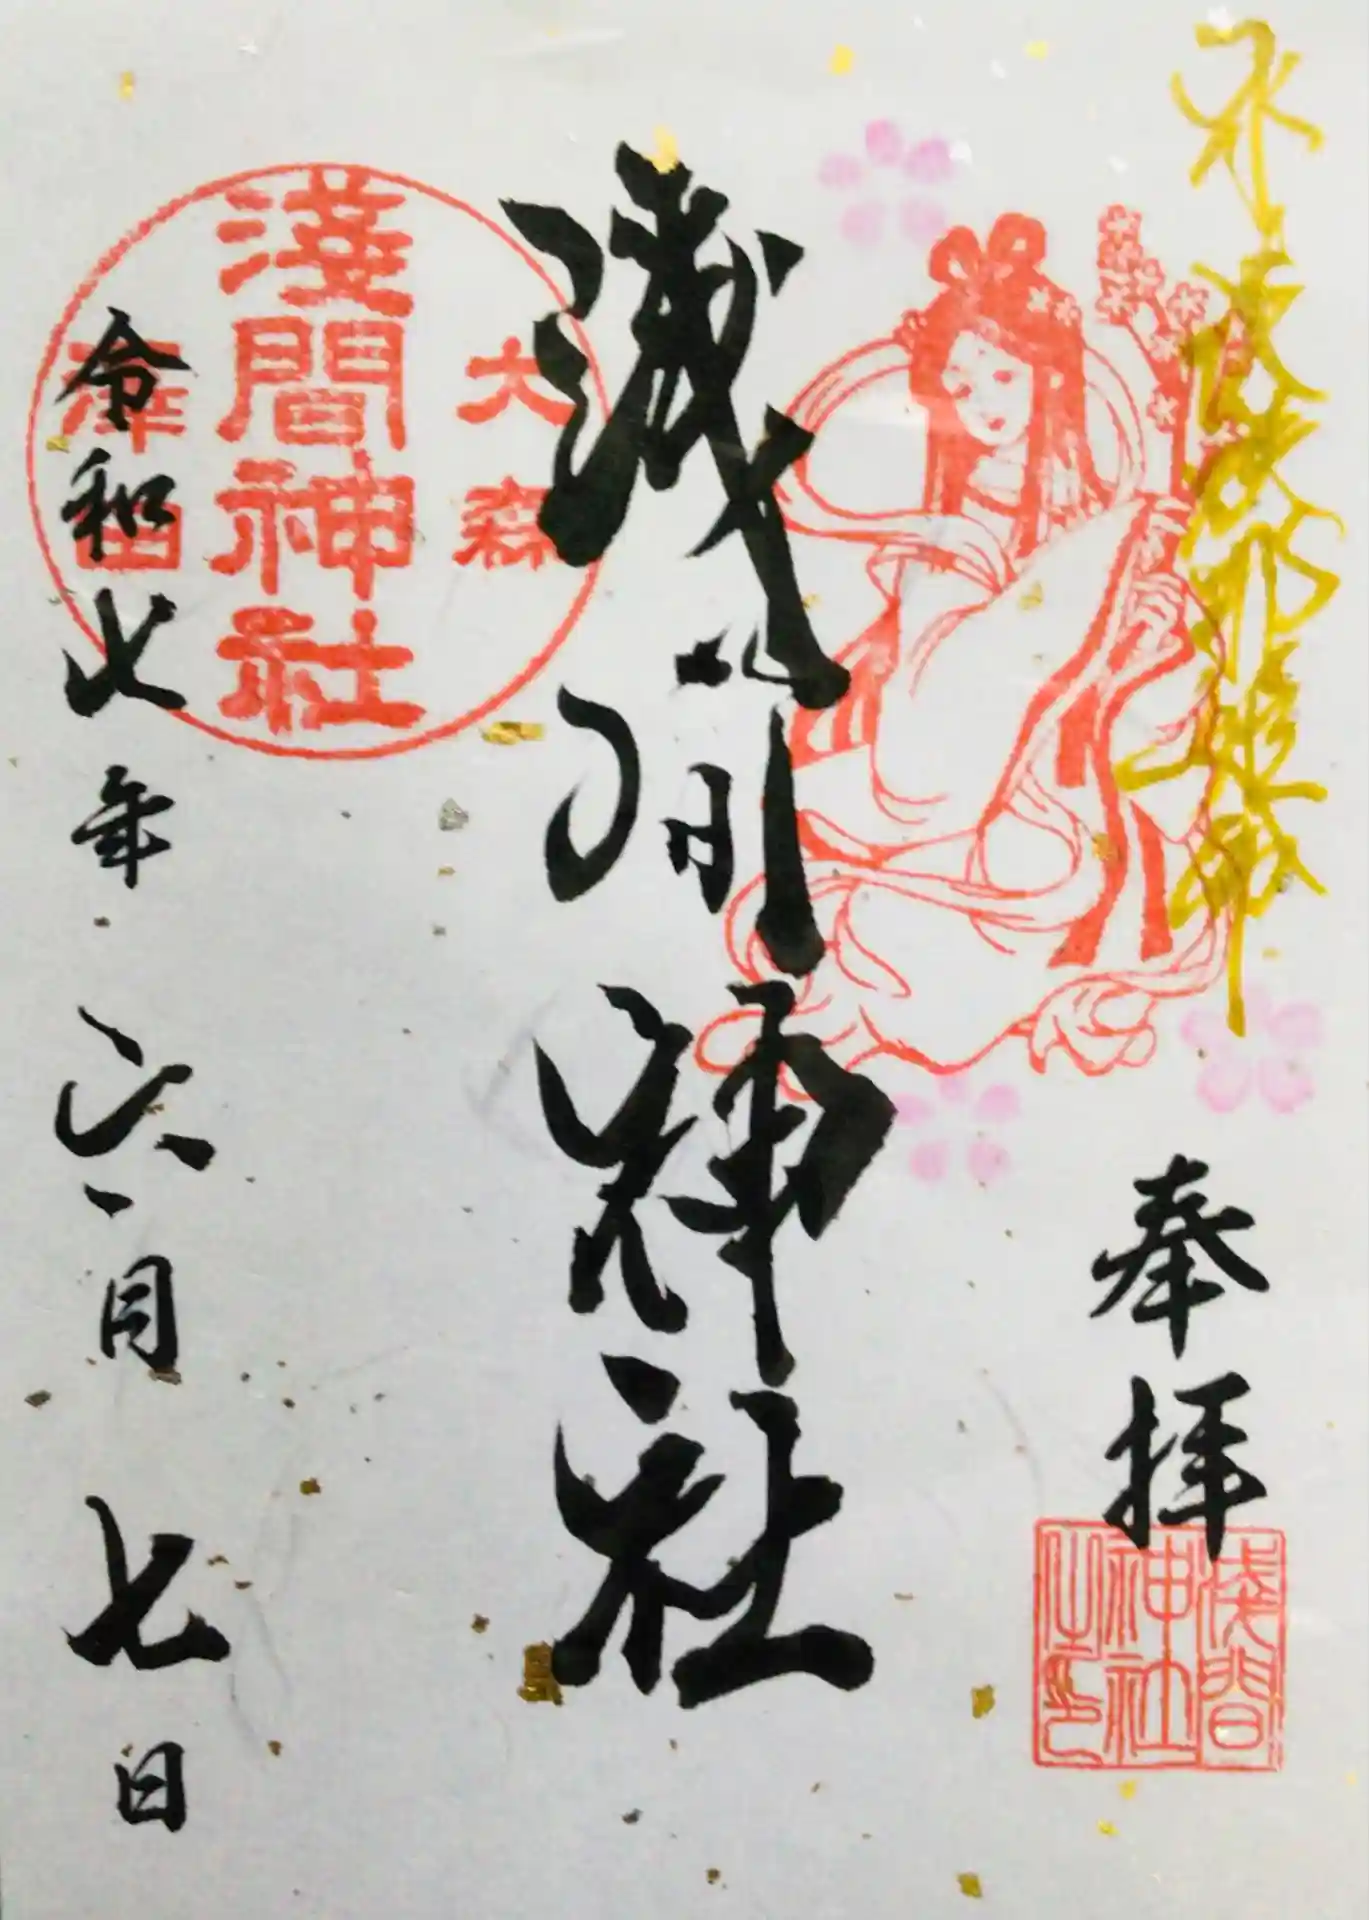 木花咲耶姫命
奉拝
浅間神社之印
浅間神社
大森
淺間神社
澤田
令和七年六月七日